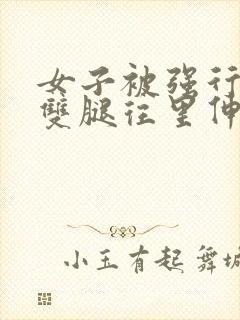 女子被强行
雙腿往里伸
小玉有起舞城